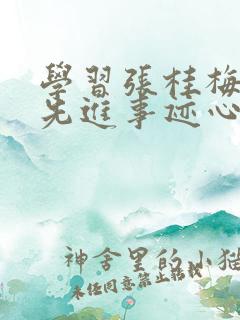 學習張桂梅
先進事迹心
神舍里的小猫
未任同意禁止转载